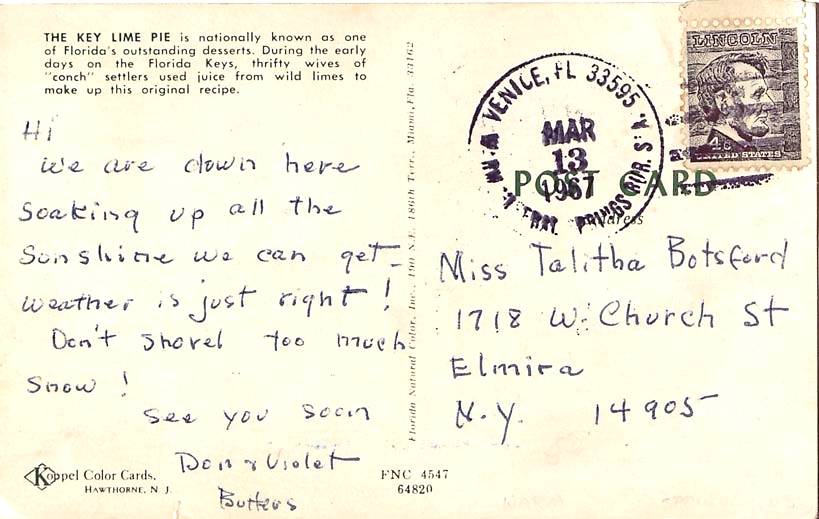 THE KEY LIME PIE is nationally known as one
of Florida's outstanding desserts. During the early
days on the Florida Keys, thrifty wives of
"conch" settlers used juice from wild limes to
make up this original recipe.
Hi
We are down here
soaking up all the
Sunshine we can get -
weather is just right!
Don't shovel too much
snow!
See you soon
Don & Violet
Butters
Koppel Color Cards,
HAWTHORNE, N. J.
FNC 4547
64820
Florida Natural Color, Inc., 190 N.E. 186th Terr., Miami, Fla. 33162
VENICE, FL 33595
MAR
13
1967
POST CARD
Address
LINCOLN
4¢
UNITED STATES
Miss Talitha Botsford
1718 W. Church St
Elmira
N.Y. 14905